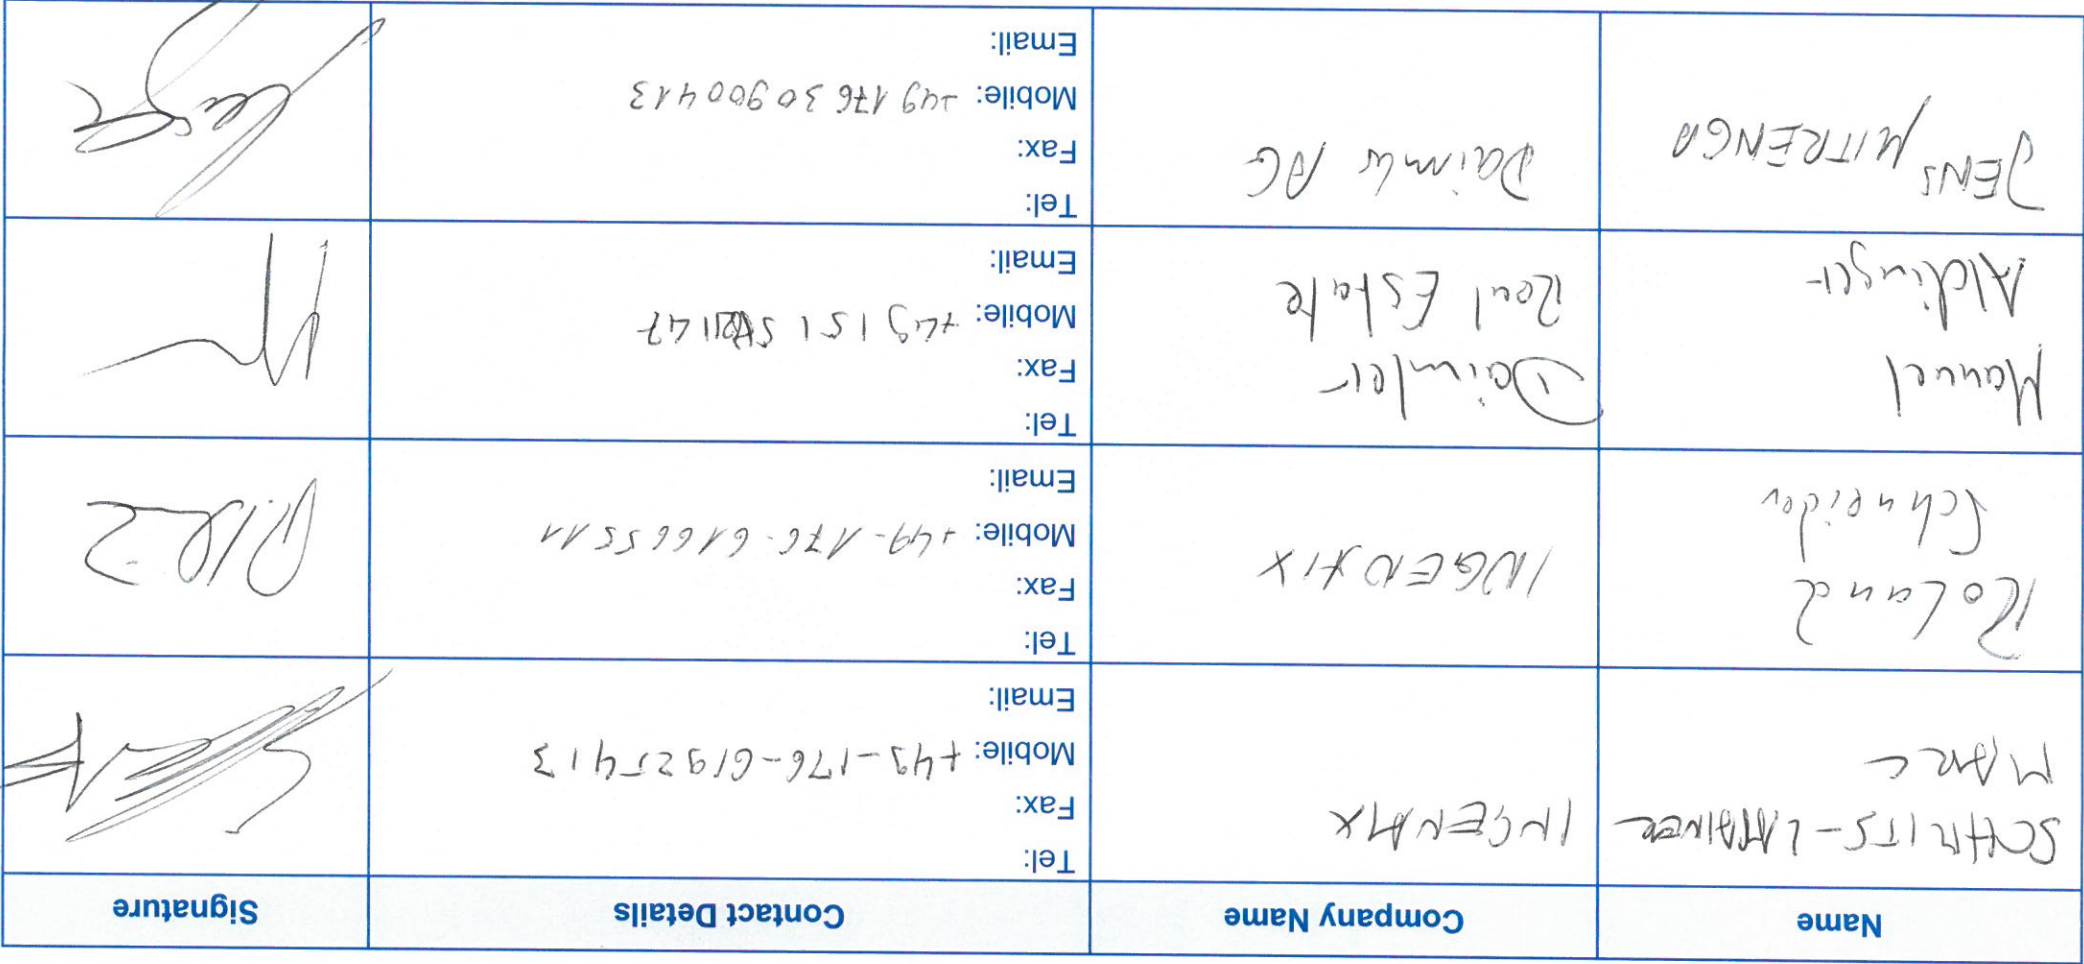 Name Company Name Contact Details Signature
SCHMITS-LATAINER
MARC
INGENAIX
Tel:
Fax:
Mobile: +49-176-61925413
Email:
Roland
Schneider
INGENAIX
Tel:
Fax:
Mobile: +49-176-61665511
Email:
Manuel
Aldinger
Daimler
Real Estate
Tel:
Fax:
Mobile: +49 151
Email:
JENS MITRENGA
Daimler AG
Tel:
Fax:
Mobile: +49 176 30900413
Email: